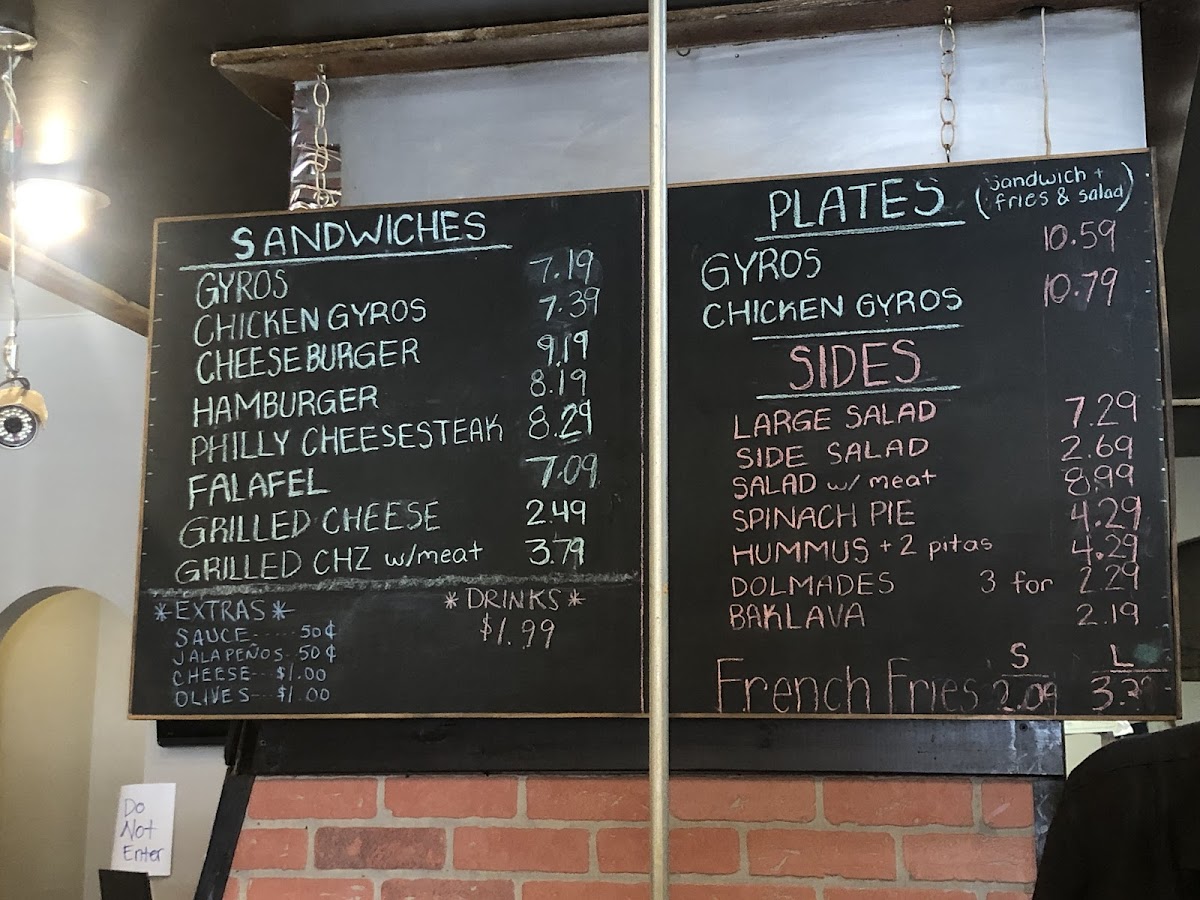 SANDWICHES
GYROS 7.19
CHICKEN GYROS 7.39
CHEESEBURGER 9.19
HAMBURGER 8.19
PHILLY CHEESESTEAK 8.29
FALAFEL 7.09
GRILLED CHEESE 2.49
GRILLED CHZ w/meat 3.79
*EXTRAS*
SAUCE..... 50¢
JALAPEÑOS. 50¢
CHEESE--- $1.00
OLIVES--- $1.00
*DRINKS*
$1.99
PLATES (Sandwich + fries & salad)
GYROS 10.59
CHICKEN GYROS 10.79
SIDES
LARGE SALAD 7.29
SIDE SALAD 2.69
SALAD w/ meat 8.99
SPINACH PIE 4.29
HUMMUS + 2 pitas 4.29
DOLMADES 3 for 2.29
BAKLAVA 2.19
S L
French Fries 2.09
Do
Not
Enter